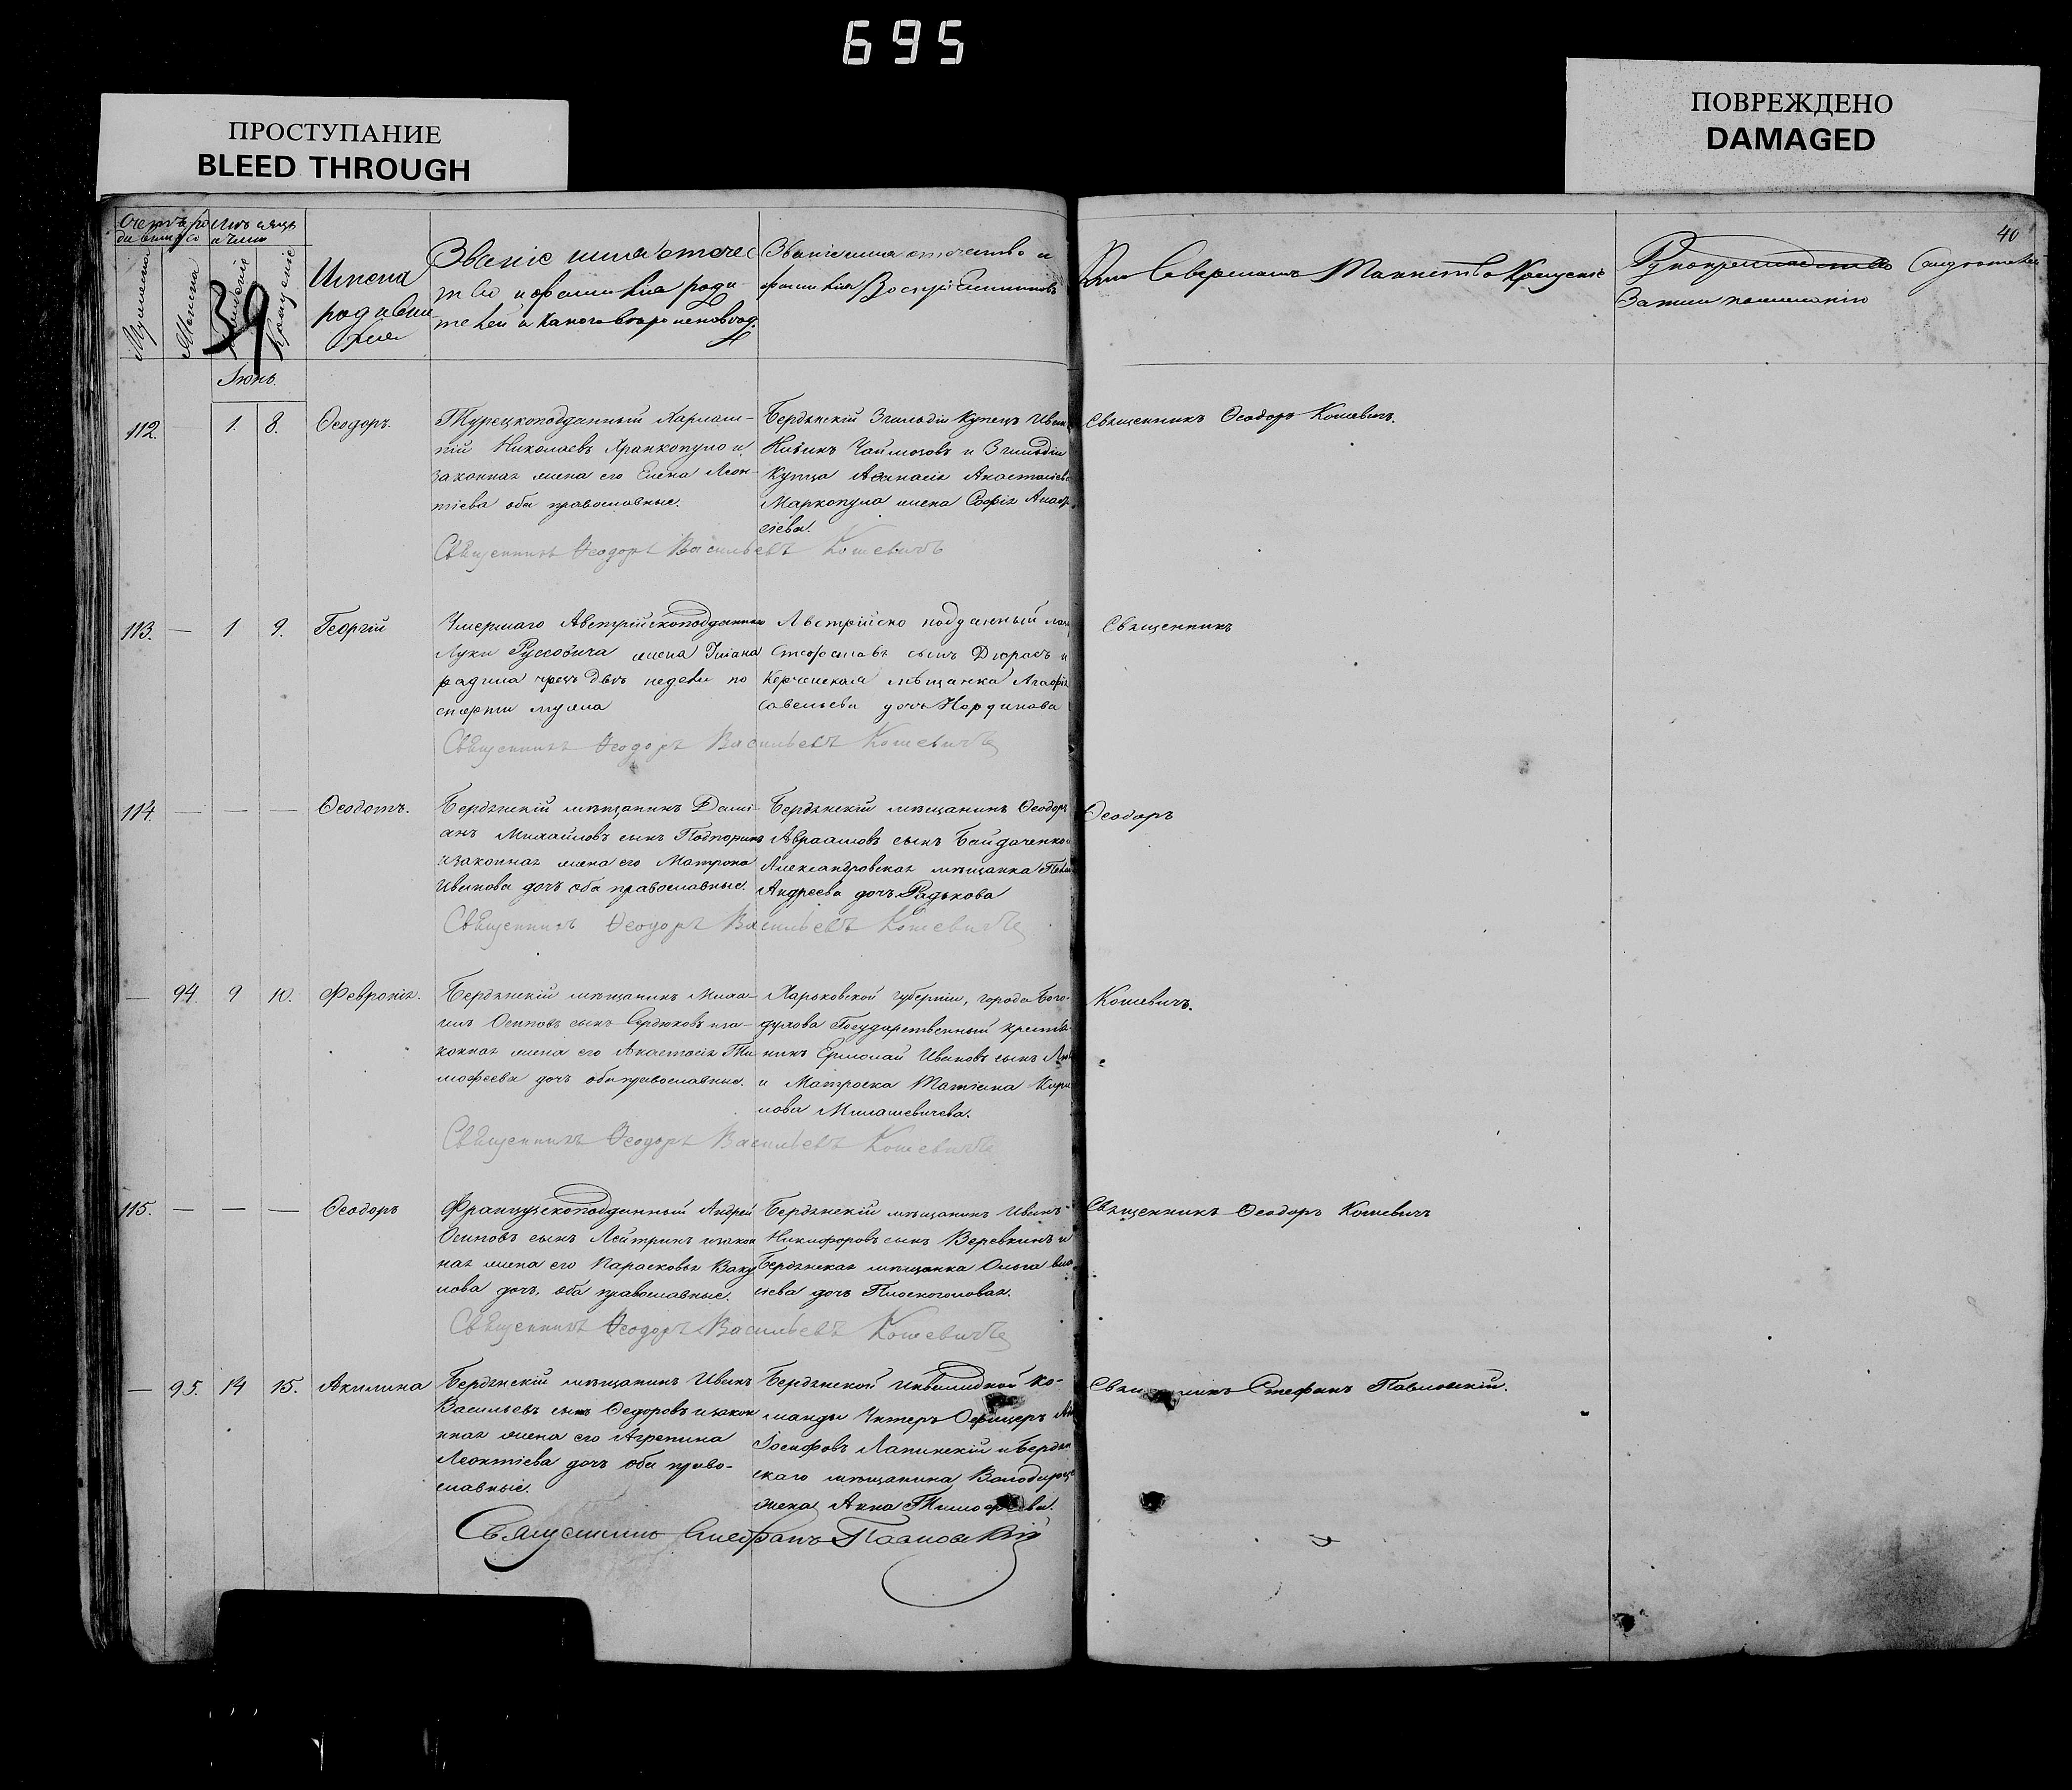 695
ПРОСТУПАНИЕ
BLEED THROUGH
ПОВРЕЖДЕНО
DAMAGED
40
39
Мужеска
Женска
Рожденіе
Крещеніе
Имена
родивши
хся
Званіе имя отчес
тво и фамилія роди-
телей и какого вѣроисповѣд.
Званіе имя отчество и
фамилія Воспріемниковъ
Кто Совершалъ Таинство Крещенія
Рукоприкладство
Іюнь.
112.
1.
8.
Ѳеодоръ.
Турецкоподданный Харлам-
пій Николаевъ и
законная жена его Елена Леон-
тіева оба православные.
Бердянскій 3 гильдіи купецъ Иванъ
и 3 гильдіи
купца Аѳанасія
жена Софія
Священникъ Ѳеодоръ Васильевъ Кошевичъ
Священникъ Ѳеодоръ Кошевичъ.
113.
—
1
9.
Георгій
Умершаго Австрійскоподданнаго
Луки Русковича жена
родила чрезъ двѣ недели по
смерти мужа
Австрійско подданный
сынъ и
Керченская мѣщанка Агафія
Савельева дочь
Священникъ Ѳеодоръ Васильевъ Кошевичъ
Священникъ
114.
—
—
—
Ѳеодотъ.
Бердянскій мѣщанинъ Дами-
анъ Михайловъ сынъ
и законная жена его Матрона
Иванова дочь оба православные.
Бердянскій мѣщанинъ Ѳеодоръ
Авраамовъ сынъ Байдаченко
Александровская мѣщанка
Андреева дочь Радькова
Священникъ Ѳеодоръ Васильевъ Кошевичъ
Ѳеодоръ
—
94.
9
10.
Февронія.
Бердянскій мѣщанинъ Миха-
илъ Осиповъ сынъ Сердюковъ и за-
конная жена его Анастасія Ти
мофеева дочь оба православные.
Харьковской губерніи, города Бого-
духова Государственный крестья-
нинъ Ермолай Ивановъ сынъ
и Матроска Татіана Кири
лова Милашевичева.
Священникъ Ѳеодоръ Васильевъ Кошевичъ
Кошевичъ.
115.
—
—
—
Ѳеодоръ
Французскоподданный Андрей
Осиповъ сынъ Лейтринъ и закон
ная жена его ПарасковьяВаку
лова дочь, оба православные.
Бердянскій мѣщанинъ Иванъ
Никифоровъ сынъ Веревкинъ и
Бердянская мѣщанка Ольга
дочь Плоскоголовая.
Священникъ Ѳеодоръ Васильевъ Кошевичъ
Священникъ Ѳеодоръ Кошевичъ
—
95.
14
15.
Акилина
Бердянскій мѣщанинъ Иванъ
Васильевъ сынъ Ѳедоровъ и закон
ная жена его Агрепина
Леонтіева дочь оба право-
славные.
Бердянской инвалидной ко-
манды Унтеръ Офицеръ
Іосифовъ Лапинскій и Бердян
скаго мѣщанина
жена Анна Тимофеева.
Священникъ Стефанъ Павловскій
Священникъ Стефанъ Павловскій.